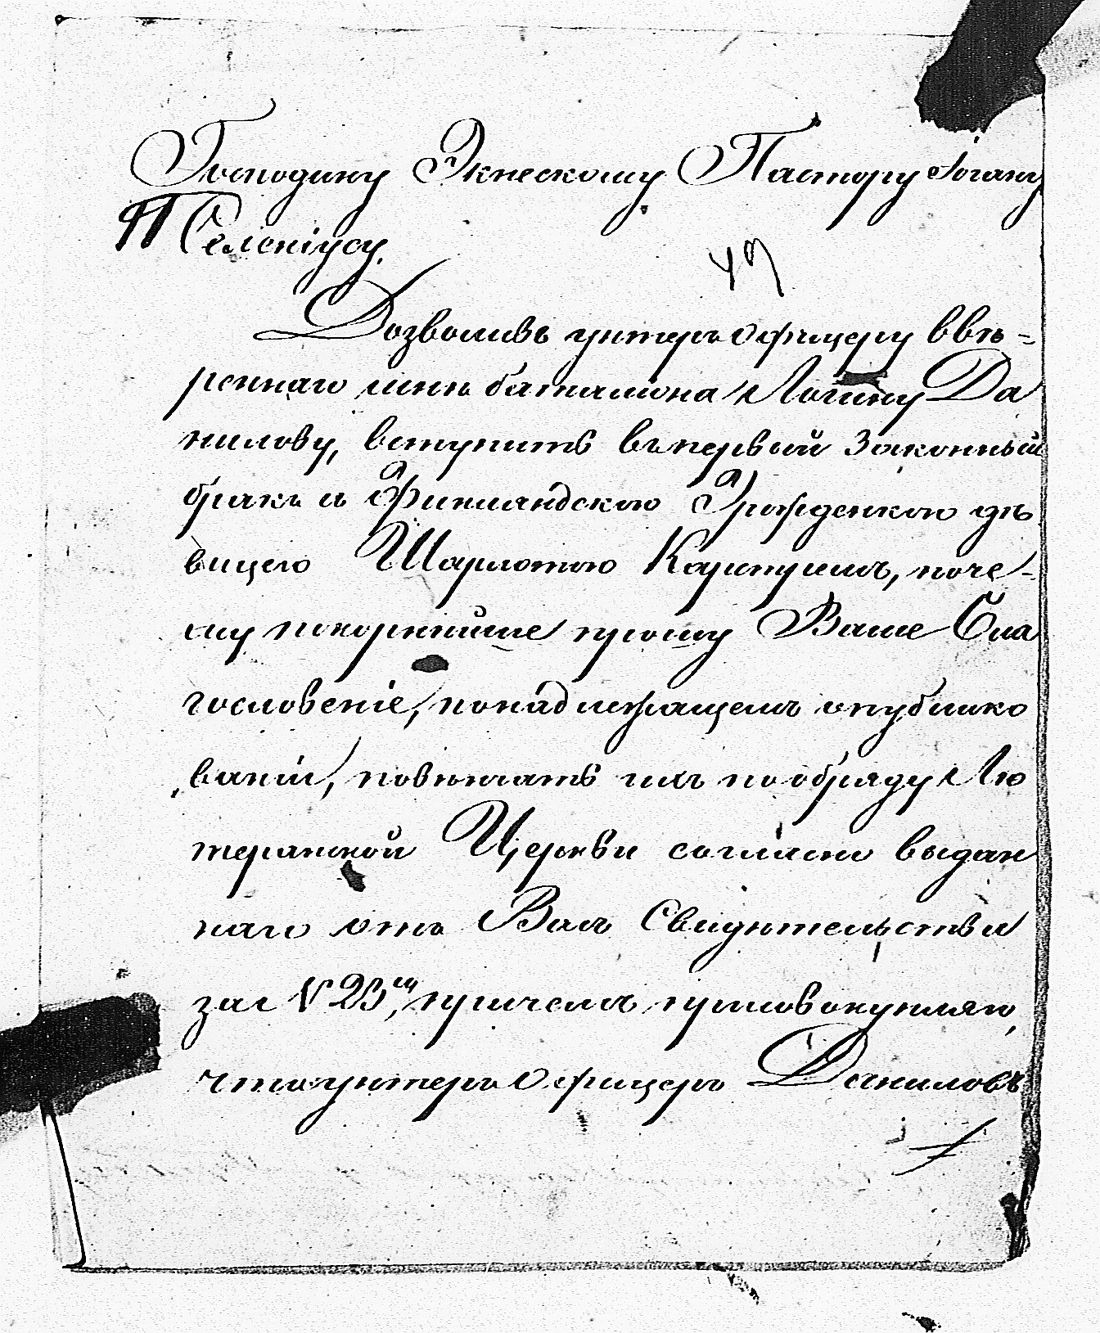 Господину Экнескому Пастору Іогану
Гелсніусу.
49
Дозволивъ унтеръ офицеру ввѣ-
реннаго мнѣ баталіона Логину Да
нилову, вступить въ первый законный
бракъ съ Финляндскою Урожденкою дѣ
вицею Шарлотою, поче-
му покорнѣйше прошу Ваше Бла
гословеніе, по надлежащемъ опублико
ваніи, повѣнчать ихъ по обряду Лю
теранской Церкви согласно выдан
наго отъ Васъ Свидѣтельства
за № 23, причемъ присовокупляю,
что унтеръ офицеръ Даниловъ